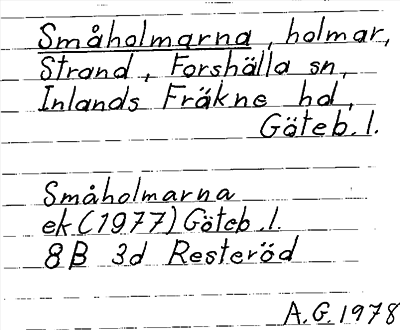 Småholmarna, holmar,
Strand, Forshälla sn,
Inlands Fräkne hd,
Göteb. l.
Småholmarna
ek (1977) Göteb. l.
8B 3d Resteröd
A.G. 1978